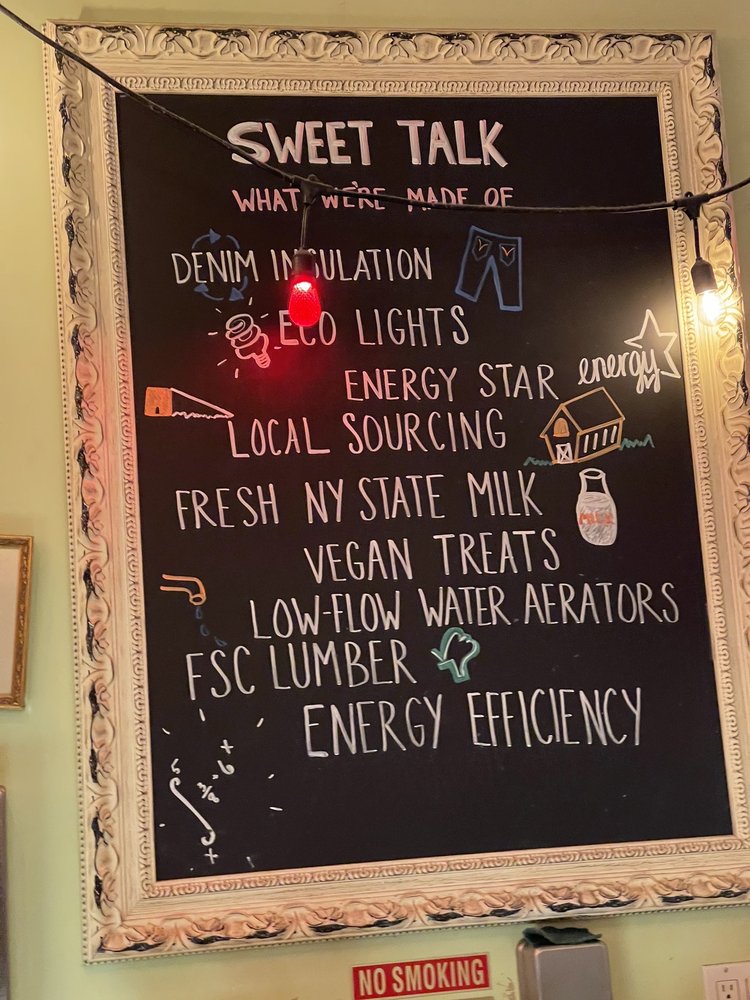 SWEET TALK
WHAT WE'RE MADE OF
DENIM INSULATION
ECO LIGHTS
ENERGY STAR energy
LOCAL SOURCING
FRESH NY STATE MILK
MILK
VEGAN TREATS
LOW-FLOW WATER AERATORS
FSC LUMBER
ENERGY EFFICIENCY
NO SMOKING